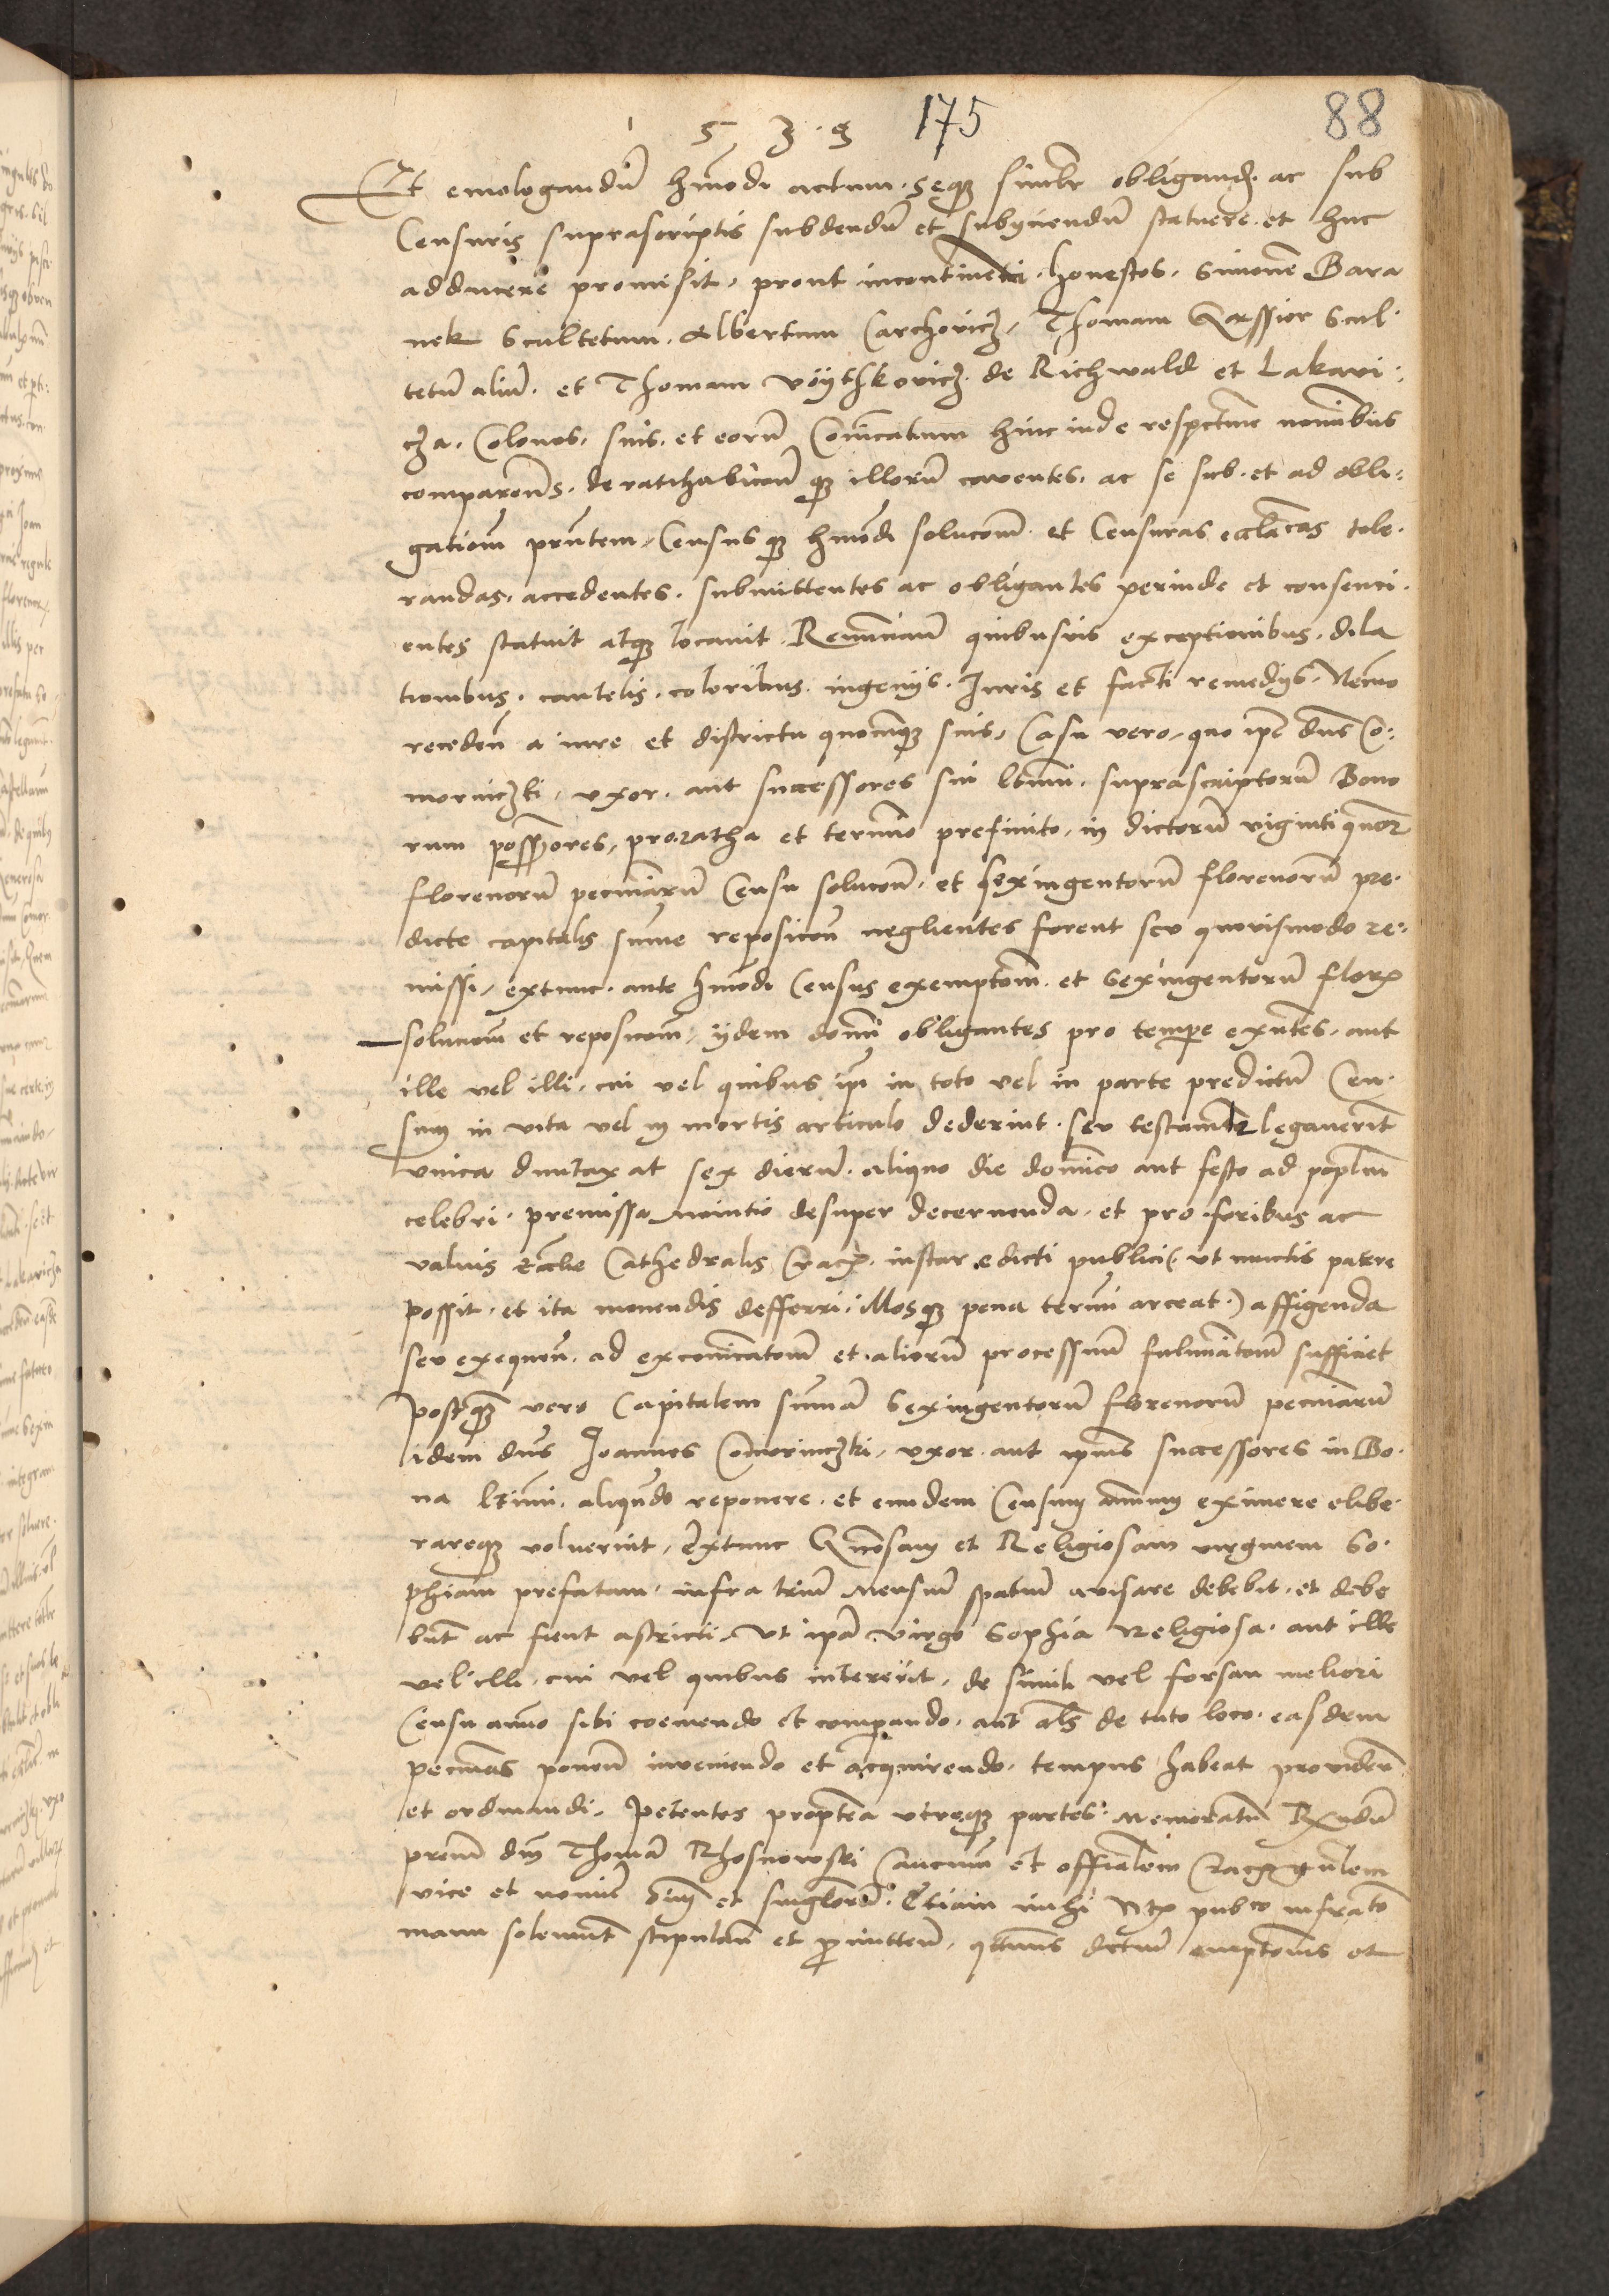 1 5 3 9 175 88
Et emologandũ hmõdi actum. seq3 simlr obligand. ac sub
Censuris suprascriptis subdendũ et subyciendũ statuere. et huc
adducere promisit, prout incontinenti. honestos. Simonẽ Bara
nek Scultetum. Albertum Carchovicz, Thomam Scul-
tetũ aliũ. et Thomam Voythkovicz. de Richwald et Lakavi:
cza. Colonos. suis. et eorũ Cõicatum hinc inde respective nomĩbus
comparẽns. de ratihabicõne q3 illorũ caventes. ac se sub. et ad obli:
gationẽ prñtem, Census q3 hmõdi solucõm. et Censuras eccl'iacas tole.
randas. accedentes. submittentes ac obligantes perinde et consenci.
entes statuit atq3 locavit. Renunciañ quibusvis exceptionibus. dila
tionibus. cautelis. coloribus. ingenys. Juris et facti remedys. Necnõ
recedeñ a iure et districtu quocũq3 suis, Casu vero, quo ip̃e dñs Co:
mорniczki, uxor. aut successores sui l̃timi. suprascriptorũ Bono
rum poss̃ores, pro ratha et termĩo prefinito, in dictorũ viginti quatuor
florenorũ pecuniarũ Censu solucõne. et sexingentorũ florenorũ pre.
dicte capitalis summe reposicõne neglientes forent seu quovismodo re:
missi, extunc. ante hmõdi Census exemptiõm. et Sexingentorũ flor.
solucõm et reposicõm, ydem domĩ obligantes pro tempore exñtes, aut
ille vel illi. cui vel quibus ip̃i in toto vel in parte predictũ Cen-
sum in vita vel in mortis articulo dederint. seu testamtr legaverint
unica duntaxat sex dierũ. aliquo die domĩco aut festo ad pop̃lm
celebri. premissa monitio desuper decernenda. et pro foribus ac
valvis Eccl'ie Cathedralis Crac. instar edicti publici (ut cunctis patere
possit. et ita monendis defferri. illosq3 pena termĩ arceat.) affigenda
seu exequeñ. ad excõicatiõm et aliorũ processuũ fulmĩatiõm sufficiet
postq3 vero Capitalem summã Sexingentorũ florenorũ pecuniarũ
idem dñs Joannes Comorniczki, uxor. aut ip̃ius successores in Bo.
na l̃timi. aliquãdo reponere. et eundem Censum annuũ eximere elibe.
rareq3 voluerint, Extunc Gñosam et Religiosam virginem So.
phiam prefatam. infra triũ Mensiũ spatiũ avisare debebit. et debe
bũt ac fient astricti. Ut ip̃a virgo Sophia Religiosa. aut ille
vel illi, cui vel quibus intererit. de simili vel forsan meliori
Censu annuo sibi coemendo et comparando. aut al's de tuto loco. easdem
pecunias poneñ inveniendo et acquirendo. tempus habeat provideñ
et ordinandi. Petentes propterea utreq3 partes. Memoratũ Rx̃ndũ
prem̃ dñm Thomã Rhosnowski Canonicũ et offialem Crac. gñlem
vice et nomĩe oĩm et singlorũ. Etiam mihi Not. pub'co infrato
manu solemnt̃ stipulañ et p̃mitteñ. q̃tinus dictũ emptiõnis et